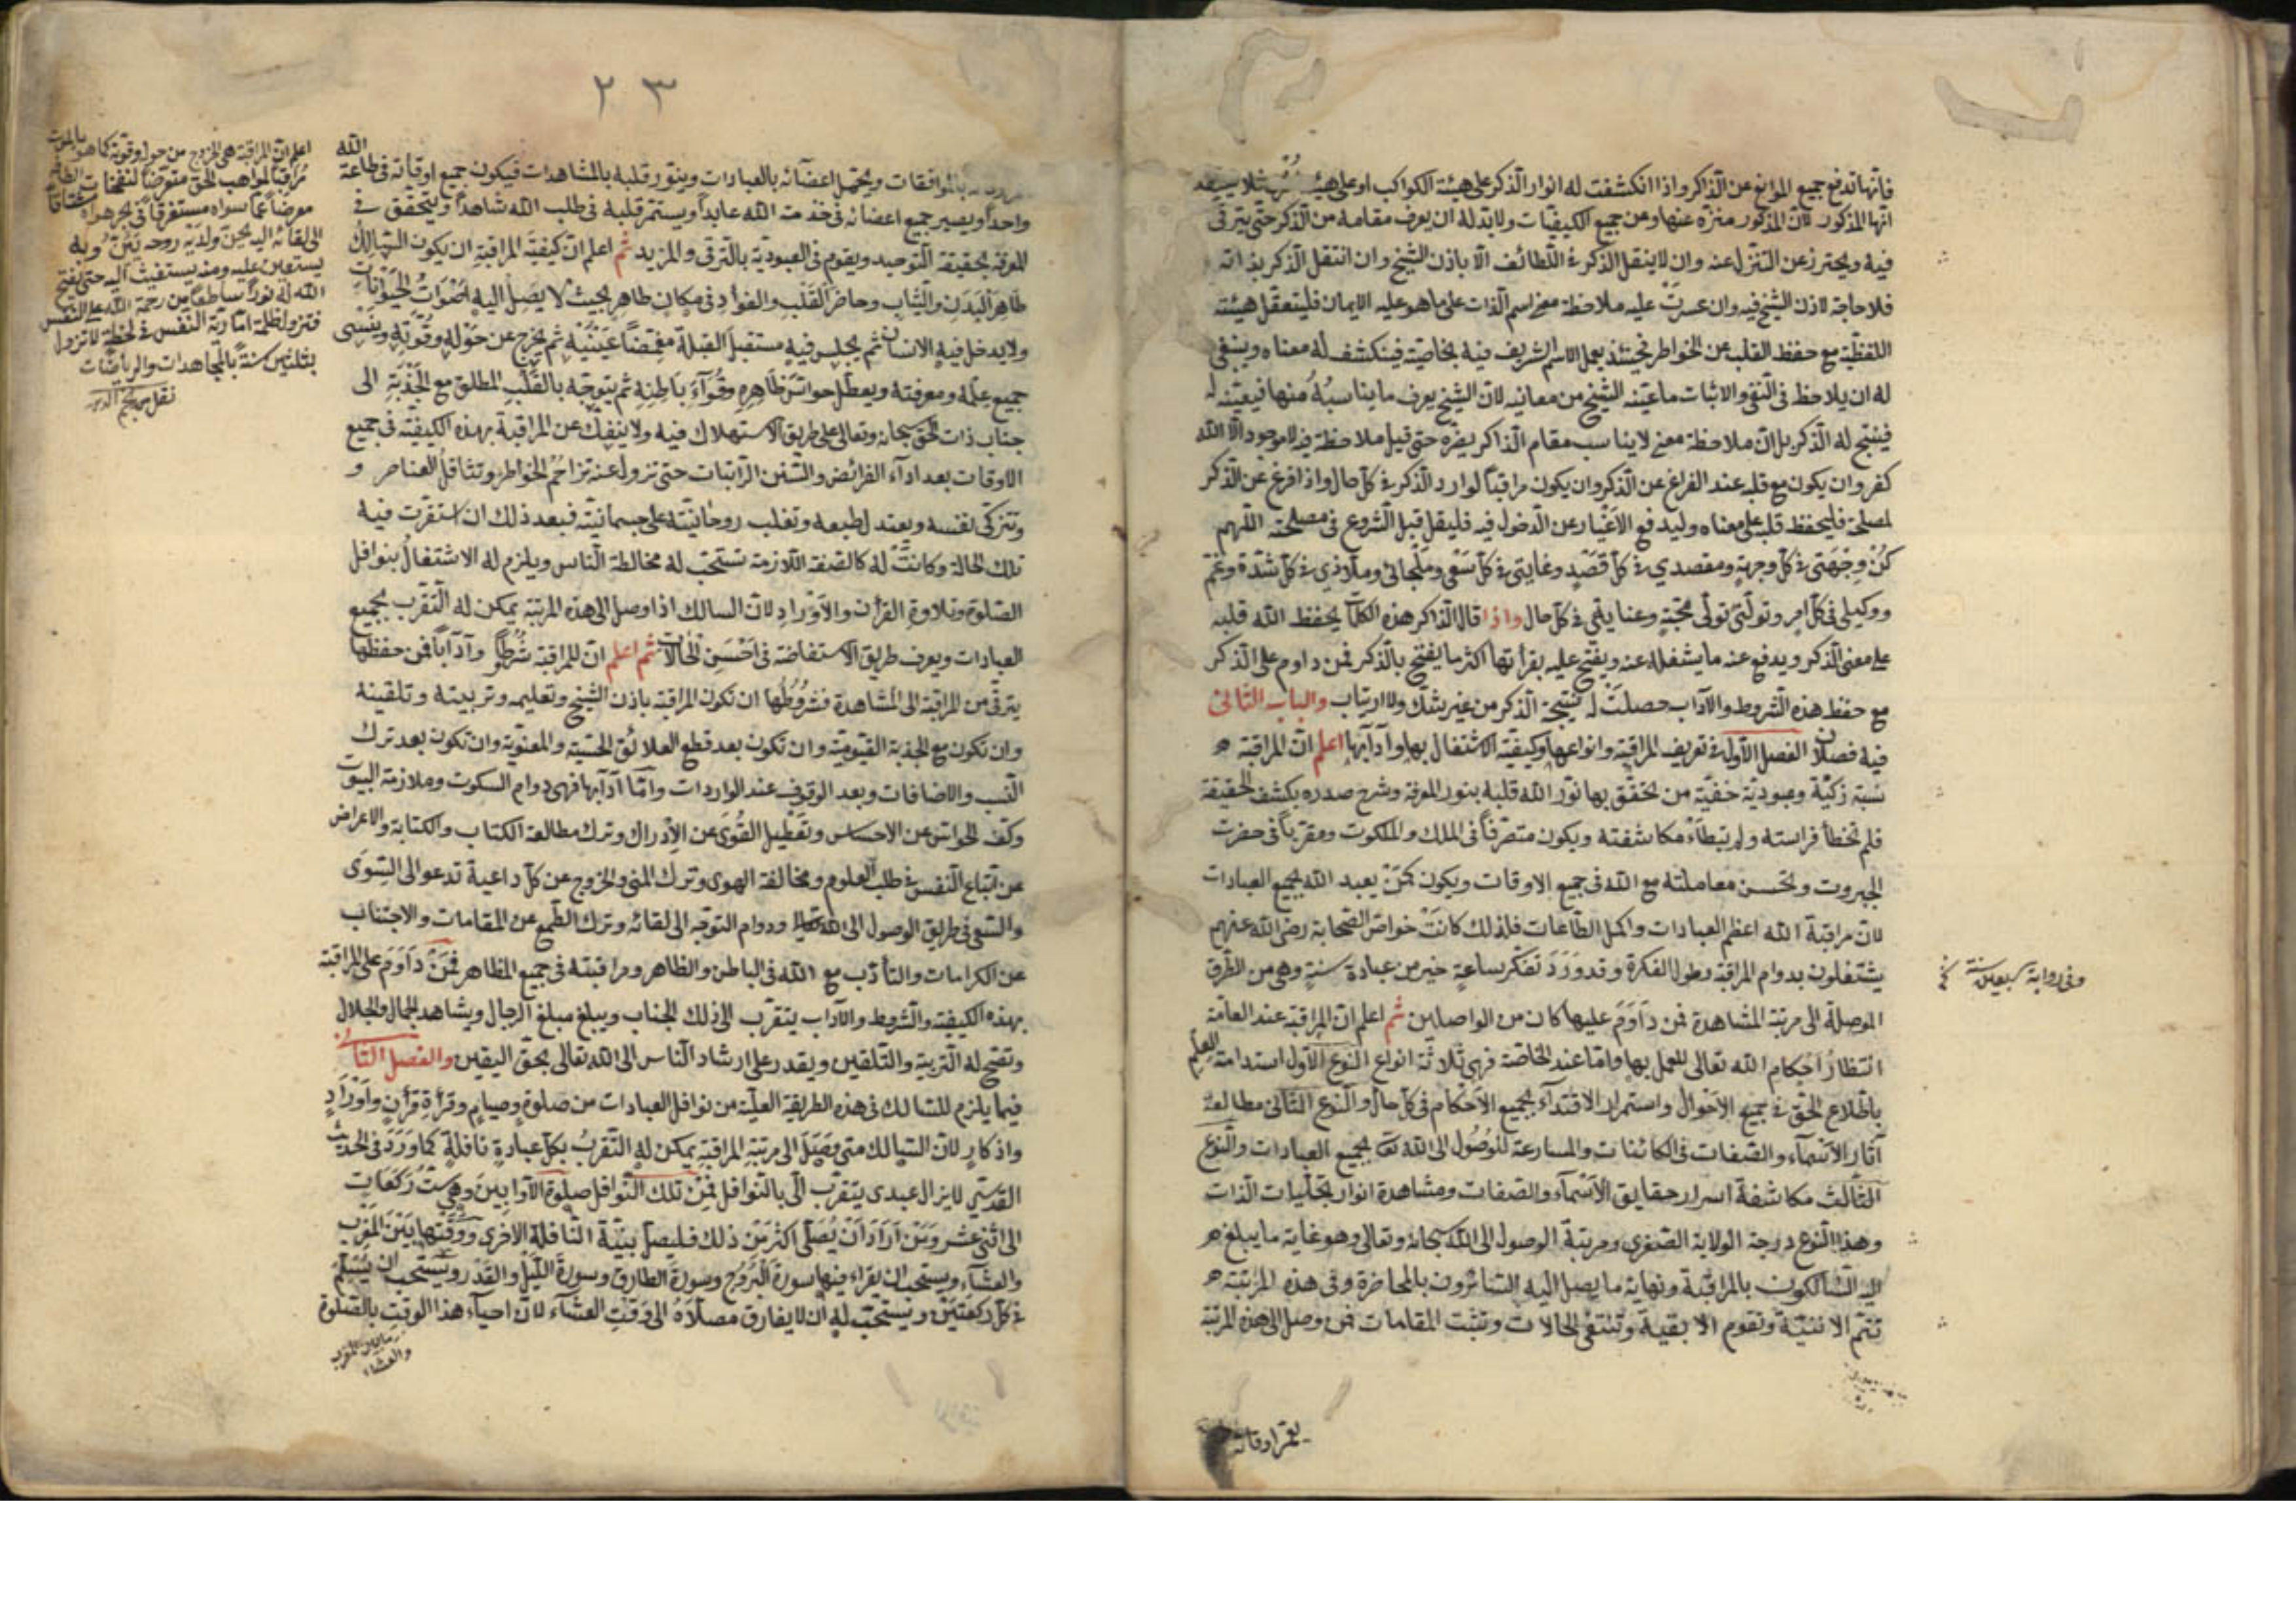 فانها تدفع جميع الموانع عن الذاكر واذا انكشفت له انوار الذكر على هيئة الكواكب او على هيئة لئلا يعتقد
انها المذكور لان المذكور منزه عنها ومن جميع الكيفيات ولابد له ان يعرف مقامه من الذكر حتى يترقى
فيه ويحترز عن التنزل عنه وان لا ينقل الذكر في اللطائف الا باذن الشيخ وان انتقل الذكر بذاته
فلا حاجة لاذن الشيخ فيه وان عسرت عليه ملاحظة معنى اسم الذات على ماهو عليه الايمان فليتعقل هيئته
اللفظية مع حفظ القلب عن الخواطر فحينئذ يعمل الاسم الشريف فيه بخاصيته فينكشف له معناه وينبغي
له ان يلاحظ في النفي والاثبات ما عينه الشيخ من معانيه لان الشيخ يعرف ما يناسبه منها فيعينه له
فينتج له الذكر بل ان ملاحظة معنى لا يناسب مقام الذاكر يضره حتى قيل ملاحظة فيه لا موجود الا الله
كفر وان يكون مع قلبه عند الفراغ عن الذكر وان يكون مراقبا لوارد الذكر في كل حال واذا فرغ عن الذكر
لمصلحة فليحفظ قلبه على معناه وليدفع الاغيار عن الدخول فيه فليقل قبل الشروع في مصلحته اللهم
كن وجهتي في كل وجهة ومقصدي في كل قصد وغايتي في كل سعي وملجائي وملاذي في كل شدة وغم
ووكيلي في كل امر وتولني تولي محبة وعناية في كل حال واذا قال الذاكر هذه الكلمات يحفظ الله قلبه
على معنى الذكر ويدفع عنه ما يشغله عنه ويفتح عليه بقرأتها اكثر ما يفتح بالذكر فمن داوم على الذكر
مع حفظ هذه الشروط والآداب حصلت له نتيجة الذكر من غير شك ولا ارتياب والباب الثاني
فيه فصلان الفصل الاول في تعريف المراقبة وانواعها وكيفية الاشتغال بها وآدابها اعلم ان المراقبة
نسبة زكية وعبودية خفية من تحقق بها نور الله قلبه بنور المعرفة وشرح صدره بكشف الحقيقة
فلم تخطأ فراسته ولم تبطاء مكاشفته ويكون متصرفا في الملك والملكوت ومقربا في حضرت
الجبروت وتحسن معاملته مع الله في جميع الاوقات ويكون كمن يعبد الله بجميع العبادات
لان مراقبة الله اعظم العبادات واكمل الطاعات فلذلك كانت خواص الصحابة رضى الله عنهم
يشتغلون بدوام المراقبة وطول الفكرة وقد ورد تفكر ساعة خير من عبادة سنة وهي من الطرق
وفى رواية سبعين سنة
الموصلة الى مرتبة المشاهدة فمن داوم عليها كان من الواصلين ثم اعلم ان المراقبة عند العامة
انتظار احكام الله تعالى للعمل بها واما عند الخاصة فهي ثلاثة انواع النوع الاول استدامة العلم
باطلاع الحق في جميع الاحوال واستمرار الاقتداء بجميع الاحكام في كل حال والنوع الثاني مطالعة
آثار الاسماء والصفات في الكائنات والمسارعة للوصول الى الله تعا بجميع العبادات والنوع
الثالث مكاشفة اسرار حقايق الاسماء والصفات ومشاهدة انوار تجليات الذات
وهذا النوع درجة الولاية الصغرى ومرتبة الوصول الى الله سبحانه وتعالى وهو غاية ما يبلغ
اليه السالكون بالمراقبة ونهاية ما يصل اليه السائرون بالمحاضرة وفى هذه المرتبة
تتم الاثنية وتقوم الابقية وتنتفى الحالات وتثبت المقامات فمن وصل الى هذه المرتبة
يعمر اوقاته
٢٣
بالموافقات ويجمل اعضائه بالعبادات وينور قلبه بالمشاهدات فيكون جميع اوقاته في طاعة الله
واحدا ويصير جميع اعضائه في خدمت الله عابدا ويستمر قلبه في طلب الله شاهدا ويتحقق في
المعرفة بحقيقة التوحيد ويقوم في العبودية بالترقى والمزيد ثم اعلم ان كيفية المراقبة ان يكون السالك
طاهر البدن والثياب وحاضر القلب والفواد في مكان طاهر بحيث لا يصل اليه اصوات الحيوانات
ولا يدخل فيه الانسان ثم يجلس فيه مستقبل القبلة مغمضا عينيه ثم يخرج عن حوله وقوته وينسى
جميع علمه ومعرفته ويعطل حواس ظاهره وقواء باطنه ثم يتوجه بالقلب المطلق مع الجذبة الى
جناب ذات الحق سبحانه وتعالى على طريق الاستهلاك فيه ولا ينفك عن المراقبة بهذه الكيفية في جميع
الاوقات بعد اداء الفرائض والسنن الراتبات حتى تزول عنه تزاحم الخواطر وتثاقل العناصر و
وتتزكى نفسه ويعتدل طبعه وتغلب روحانيته على جسمانيته فبعد ذلك ان استقرت فيه
تلك الحالة وكانت له كالصفة اللازمة تستحب له مخالطة الناس ويلزم له الاشتغال بنوافل
الصلوة وتلاوة القرأن والاوراد لان السالك اذا وصل الى هذه المرتبة يمكن له التقرب بجميع
العبادات ويعرف طريق الاستفاضة في احسن الحالات ثم اعلم ان للمراقبة شروطا وآدابا فمن حفظها
يترقى من المراقبة الى المشاهدة فشروطها ان تكون المراقبة باذن الشيخ وتعليمه وتربيته وتلقينه
وان تكون مع الجذبة القيومية وان تكون بعد قطع العلائق الحسية والمعنوية وان تكون بعد ترك
النسب والاضافات وبعد الوقوف عند الواردات واما آدابها فهي دوام السكوت وملازمة البيوت
وكف الحواس عن الاحساس وتعطيل القوى عن الادراك وترك مطالعة الكتاب والكتابة والاعراض
عن اتباع النفس في طلب العلوم ومخالفة الهوى وترك المنى والخروج عن كل داعية تدعو الى السوى
والسعى في طريق الوصول الى الله تعالى ودوام التوجه الى لقائه وترك الطمع عن المقامات والاجتناب
عن الكرامات والتأدب مع الله في الباطن والظاهر ومراقبته في جميع المظاهر فمن داوم على المراقبة
بهذه الكيفية والشروط والآداب يتقرب الى ذلك الجناب ويبلغ مبلغ الرجال ويشاهد الجمال والجلال
وتفتح له التربية والتلقين ويقدر على ارشاد الناس الى الله تعالى بحق اليقين والفصل الثاني
فيما يلزم للسالك في هذه الطريقة العلية من نوافل العبادات من صلوة وصيام وقرأة قرأن واوراد
واذكار لان السالك متى وصل الى مرتبة المراقبة يمكن له التقرب بكل عبادة نافلة كما ورد في الحديث
القدسي لا يزال عبدى يتقرب الى بالنوافل فمن تلك النوافل صلوة الاوابين وهي ست ركعات
الى اثنى عشر ومن اراد ان يصلى اكثر من ذلك فليصل بنية النافلة الاخرى ووقتها بين المغرب
والعشاء ويستحب ان يقراء فيها سورة البروج وسورة الطارق وسورة الليل والقدر ويستحب ان يسلم
في كل ركعتين ويستحب له ان لا يفارق مصلاه الى وقت العشاء لان احياء هذا الوقت بالصلوة
والعشاء
اعلم ان المراقبة هي الخروج من حوله وقوته كما هو بالموت
مراقبا لمواهب الحق متعرضا لنفحات الطافه
معرضا عما سواه مستغرقا في بحر هواه مشتاقا
الى لقائه اليه يحن ولديه روحه يئن وبه
يستعين عليه ومنه يستغيث اليه حتى يفتح
الله له نورا ساطعا من رحمة الله على النفس
فتزول ظلمة امارية النفس في لحظة لا تزول
بثلثين سنة بالمجاهدات والرياضات